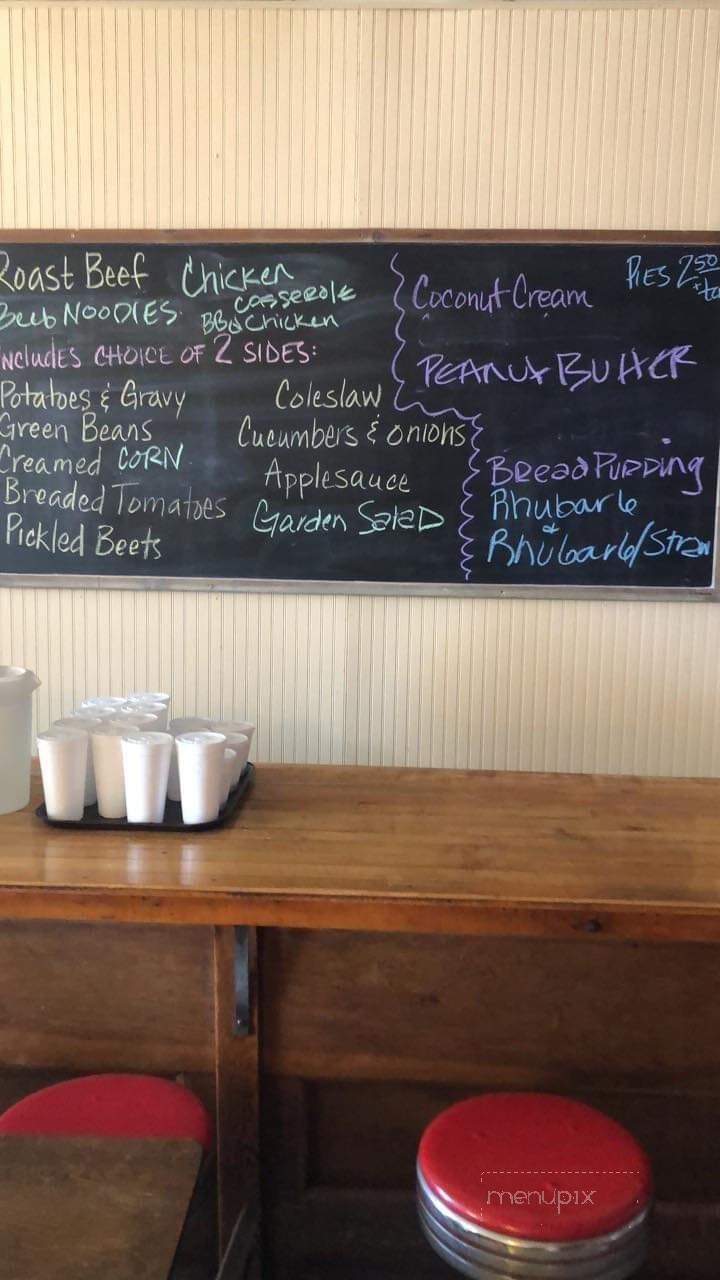 Roast Beef Chicken
Beef NOODLES. Casserole
BBQ Chicken
INCLUDES CHOICE OF 2 SIDES:
Potatoes & Gravy
Green Beans
Creamed CORN
Breaded Tomatoes
Pickled Beets
Coleslaw
Cucumbers & onions
Applesauce
Garden SalaD
PIES 2.50
Coconut Cream
PEANUt BUttER
BreaD PuDDing
Rhubarb
&
Rhubarb/Straw
menupix